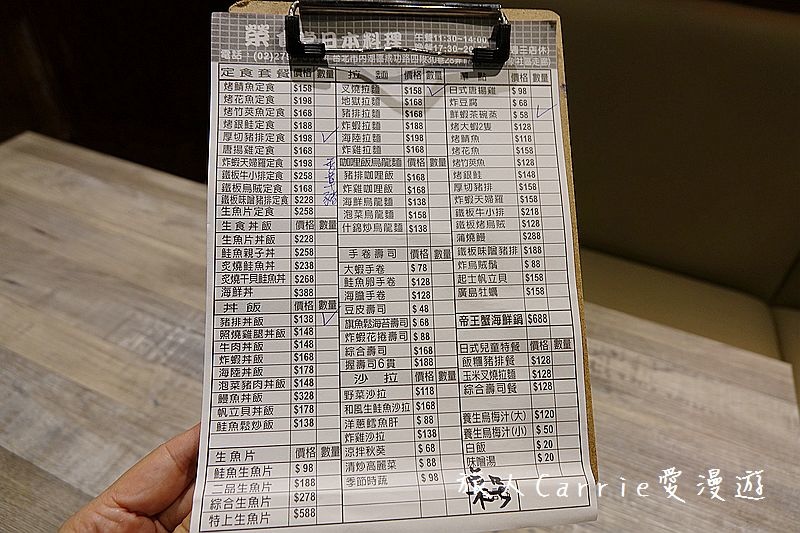 日本料理
午餐11:30~14:00
電話
定食套餐 價格 數量
烤鯖魚定食 $158
烤花魚定食 $198
烤竹莢魚定食 $168
烤銀鮭定食 $188
厚切豬排定食 $198
唐揚雞定食 $168
炸蝦天婦羅定食 $198
鐵板牛小排定食 $258
鐵板烏賊定食 $168
鐵板味噌豬排定食 $228
生魚片定食 $258
生食丼飯 價格 數量
生魚片丼飯 $228
鮭魚親子丼 $258
炙燒鮭魚丼 $238
炙燒干貝鮭魚丼 $268
海鮮丼 $388
丼飯 價格 數量
豬排丼飯 $138
照燒雞腿丼飯 $148
牛肉丼飯 $148
炸蝦丼飯 $168
海陸丼飯 $178
泡菜豬肉丼飯 $148
鰻魚丼飯 $328
帆立貝丼飯 $178
鮭魚鬆炒飯 $138
生魚片 價格 數量
鮭魚生魚片 $98
二品生魚片 $188
綜合生魚片 $278
特上生魚片 $588
拉麵 價格 數量
叉燒拉麵 $158
地獄拉麵 $168
豬排拉麵 $168
炸蝦拉麵 $188
海陸拉麵 $198
炸雞拉麵 $168
咖哩飯烏龍麵 價格 數量
豬排咖哩飯 $168
炸雞咖哩飯 $168
海鮮烏龍麵 $138
泡菜烏龍麵 $158
什錦炒烏龍麵 $138
手卷壽司 價格 數量
大蝦手卷 $78
鮭魚卵手卷 $128
海膽手卷 $128
豆皮壽司 $48
旗魚鬆海苔壽司 $68
炸蝦花捲壽司 $88
綜合壽司 $168
握壽司6貫 $188
沙拉 價格 數量
野菜沙拉 $118
和風生鮭魚沙拉 $168
洋蔥鱈魚肝 $88
炸雞沙拉 $138
涼拌秋葵 $68
清炒高麗菜 $88
季節時蔬 $98
單點 價格 數量
日式唐揚雞 $98
炸豆腐 $68
鮮蝦茶碗蒸 $58
烤大蝦2隻 $128
烤鯖魚 $118
烤花魚 $158
烤竹莢魚 $128
烤銀鮭 $148
厚切豬排 $158
炸蝦天婦羅 $158
鐵板牛小排 $218
鐵板烤烏賊 $128
蒲燒鰻 $288
鐵板味噌豬排 $188
炸烏賊鬚 $88
起士帆立貝 $158
廣島牡蠣 $158
帝王蟹海鮮鍋 $688
日式兒童特餐 價格 數量
飯糰豬排餐 $128
玉米叉燒拉麵 $128
綜合壽司餐 $128
養生烏梅汁(大) $120
養生烏梅汁(小) $50
白飯 $20
味噌湯 $20
旅人Carrie愛漫遊